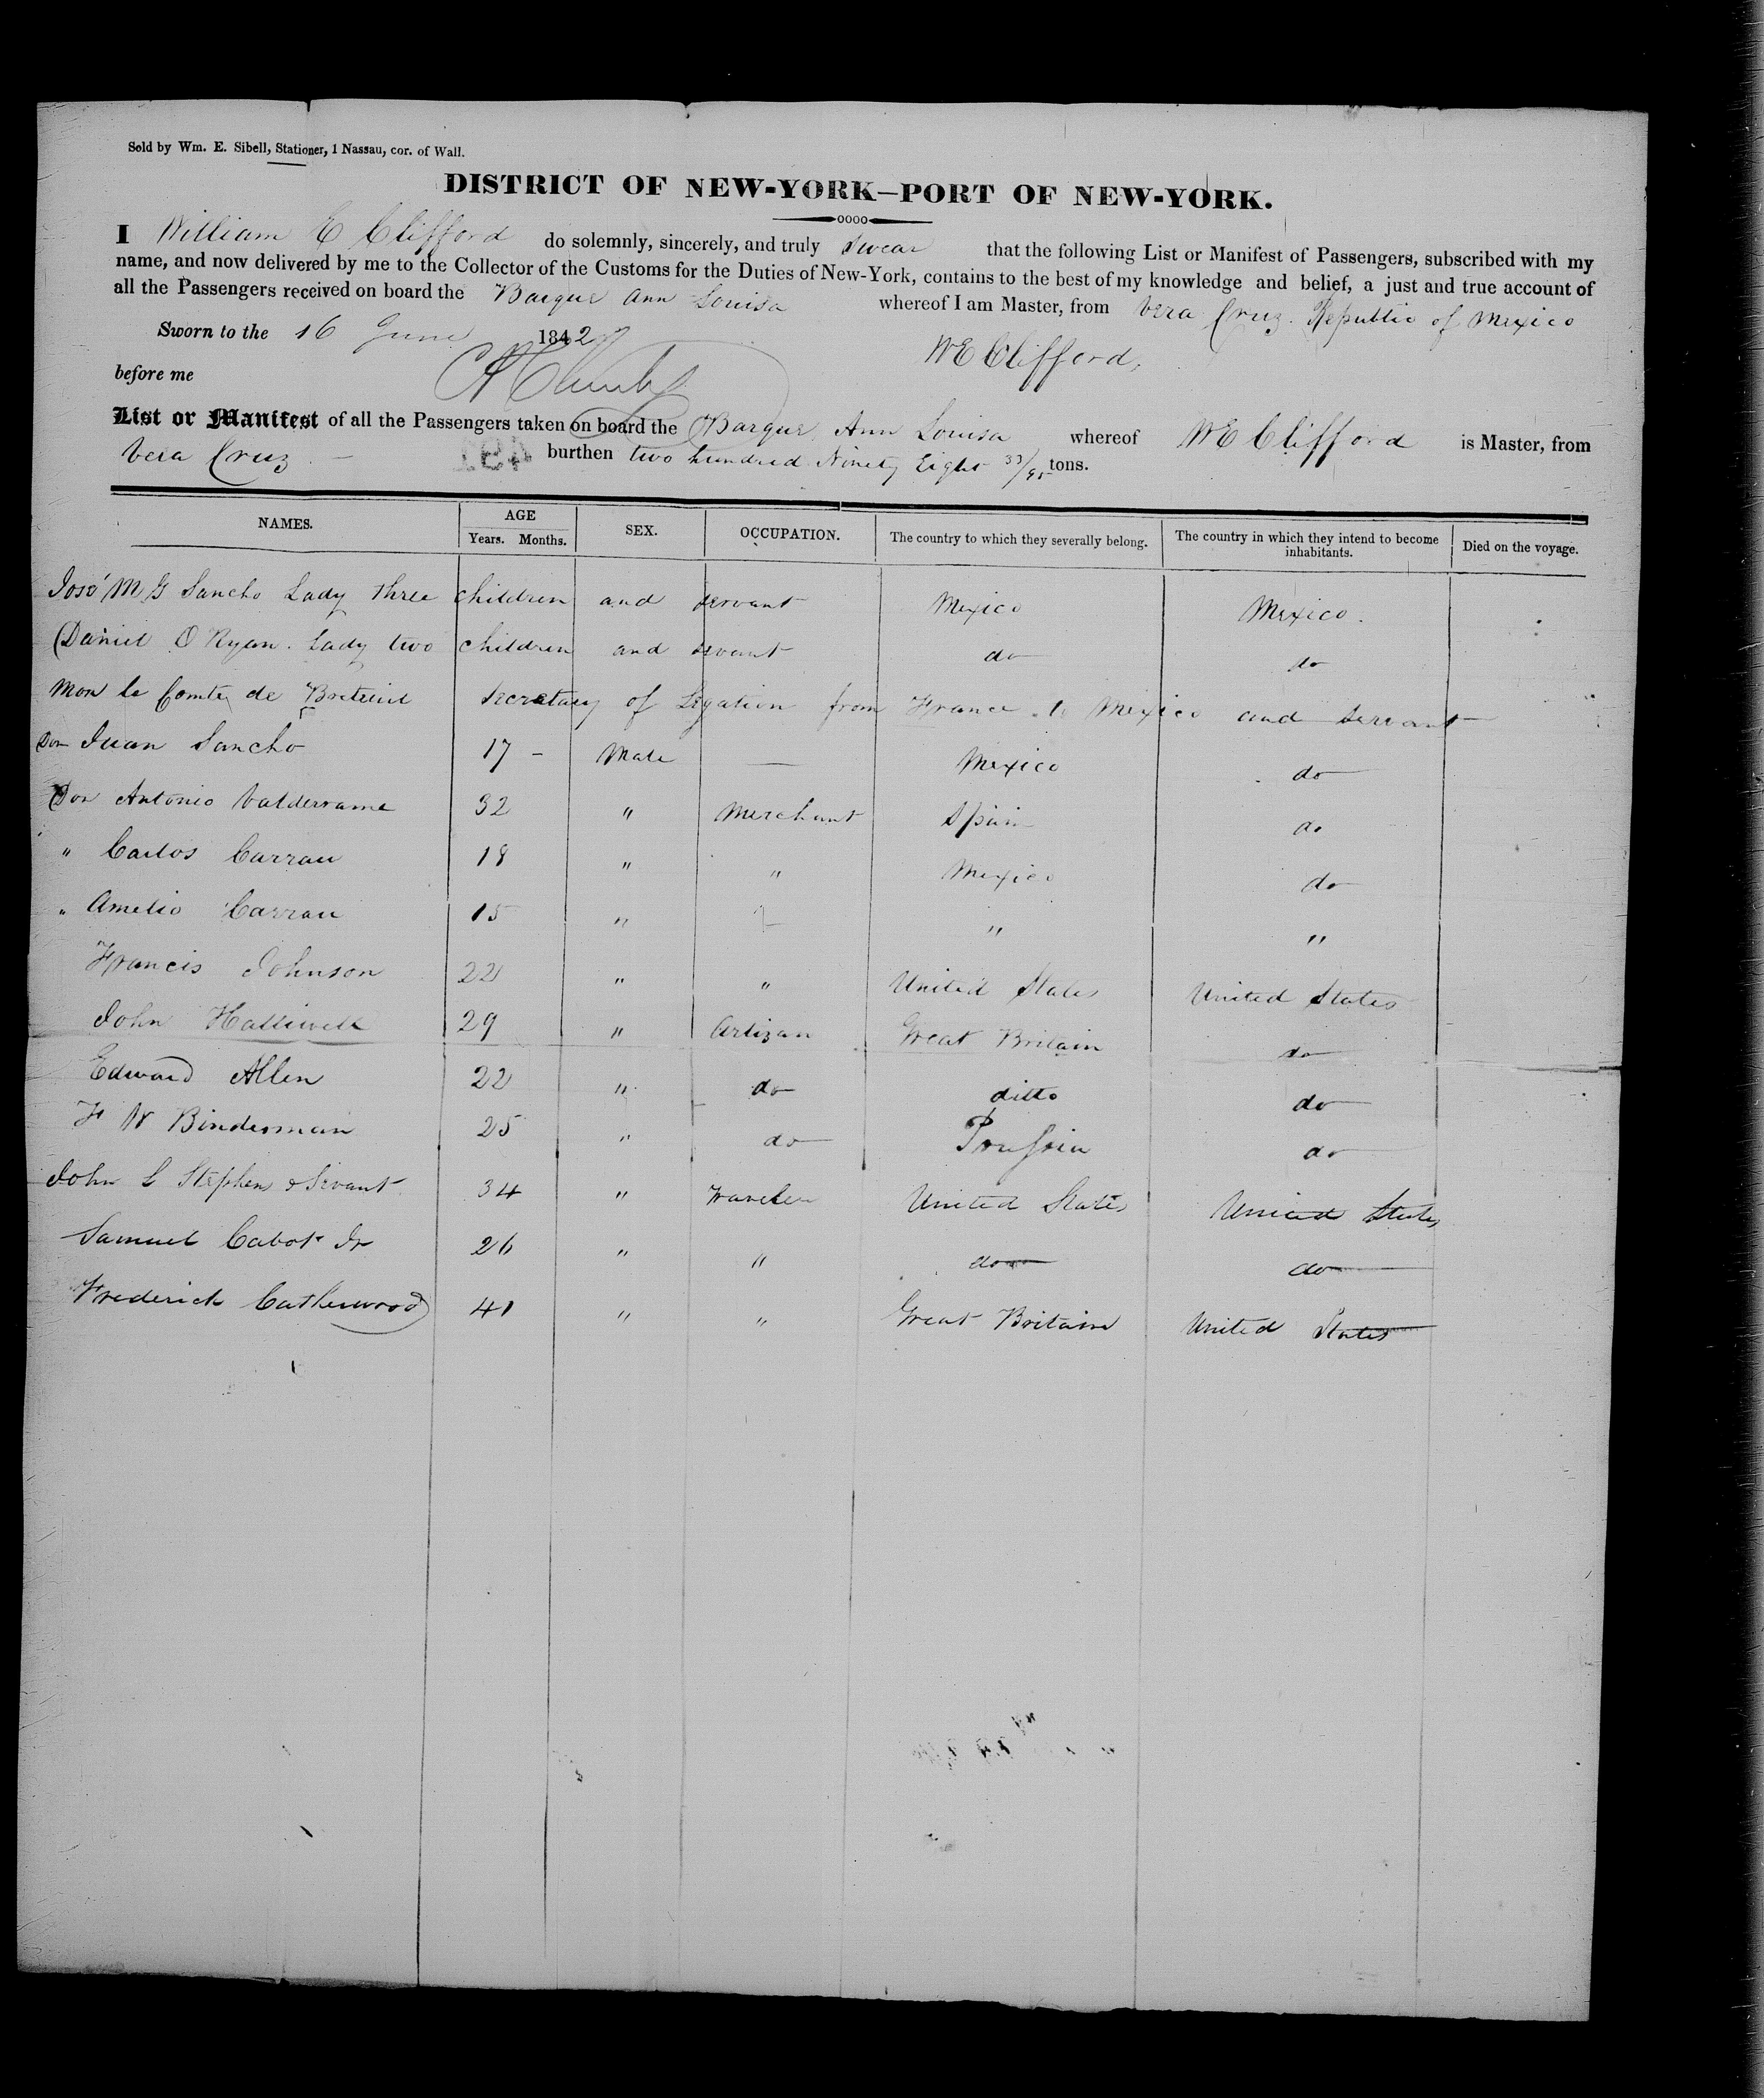 Sold by Wm. E. Sibell, Stationer, 1 Nassau, cor. of Wall.
DISTRICT OF NEW-YORK—PORT OF NEW-YORK.
I William E Clifford do solemnly, sincerely, and truly Swear that the following List or Manifest of Passengers, subscribed with my
name, and now delivered by me to the Collector of the Customs for the Duties of New-York, contains to the best of my knowledge and belief, a just and true account of
all the Passengers received on board the Barque Ann Louisa whereof I am Master, from Vera Cruz. Republic of Mexico
Sworn to the 16 June 1842
W E Clifford,
before me
List or Manifest of all the Passengers taken on board the Barque Ann Louisa whereof W E Clifford is Master, from
Vera Cruz — burthen two hundred Ninety Eight 33/95 tons.
NAMES. AGE SEX. OCCUPATION. The country to which they severally belong. The country in which they intend to become inhabitants. Died on the voyage.
Years. Months.
José M G Sancho Lady three children and servant Mexico Mexico.
Daniel O Ryan. Lady two children and servant do do
Mon le Comte de Breteuil Secretary of Legation from France to Mexico and servant
Don Juan Sancho 17 - Male — Mexico do
Don Antonio Valderrama 32 " Merchant Spain do
" Carlos Carrau 18 " " Mexico do
" Amelio Carrau 15 " — " "
Francis Johnson 22 " " United States United States
John Halliwell 29 " Artizan Great Britain do
Edward Allen 22 " do ditto do
F W Binderman 25 " do Prussia do
John L Stephens & Servant 34 " Traveler United States United States
Samuel Cabot Jr 26 " " do do
Frederick Catherwood 41 " " Great Britain United States